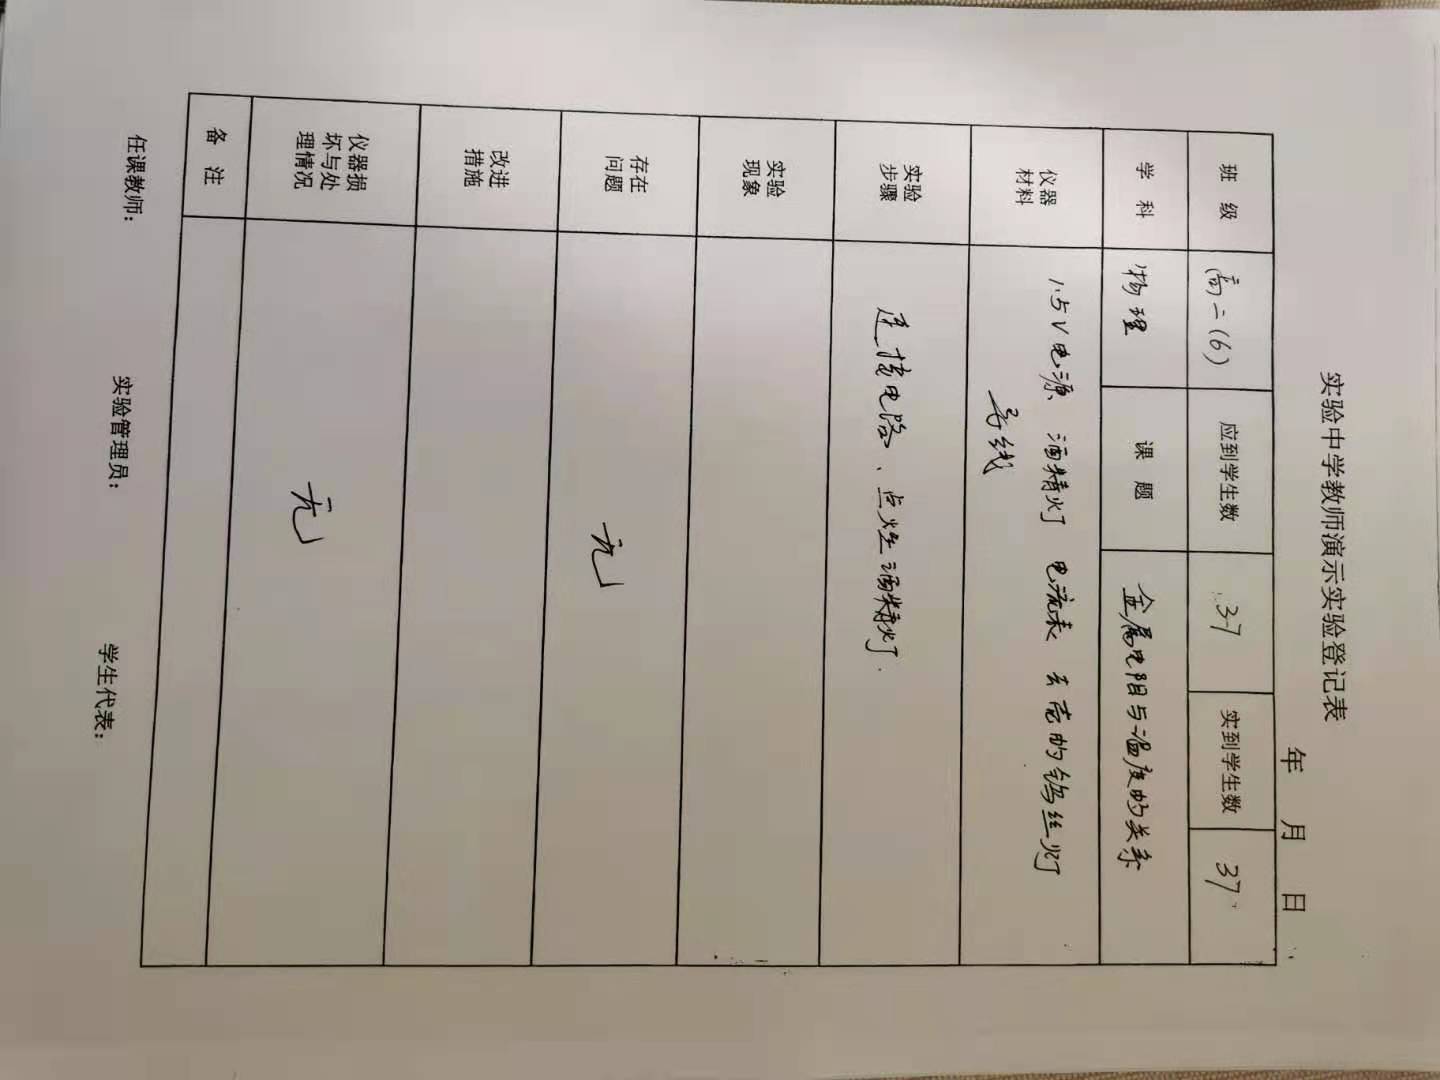 实验中学教师演示实验登记表
年 月 日
班 级 高二(6) 应到学生数 37 实到学生数 37
学 科 物理 课 题 金属电阻与温度的关系
仪器
材料
1.5V电源 酒精灯 电流表 去壳的钨丝灯
导线
实验
步骤
连接电路、点燃酒精灯.
实验
现象
存在
问题
无
改进
措施
仪器损
坏与处
理情况
无
备 注
任课教师: 实验管理员: 学生代表: